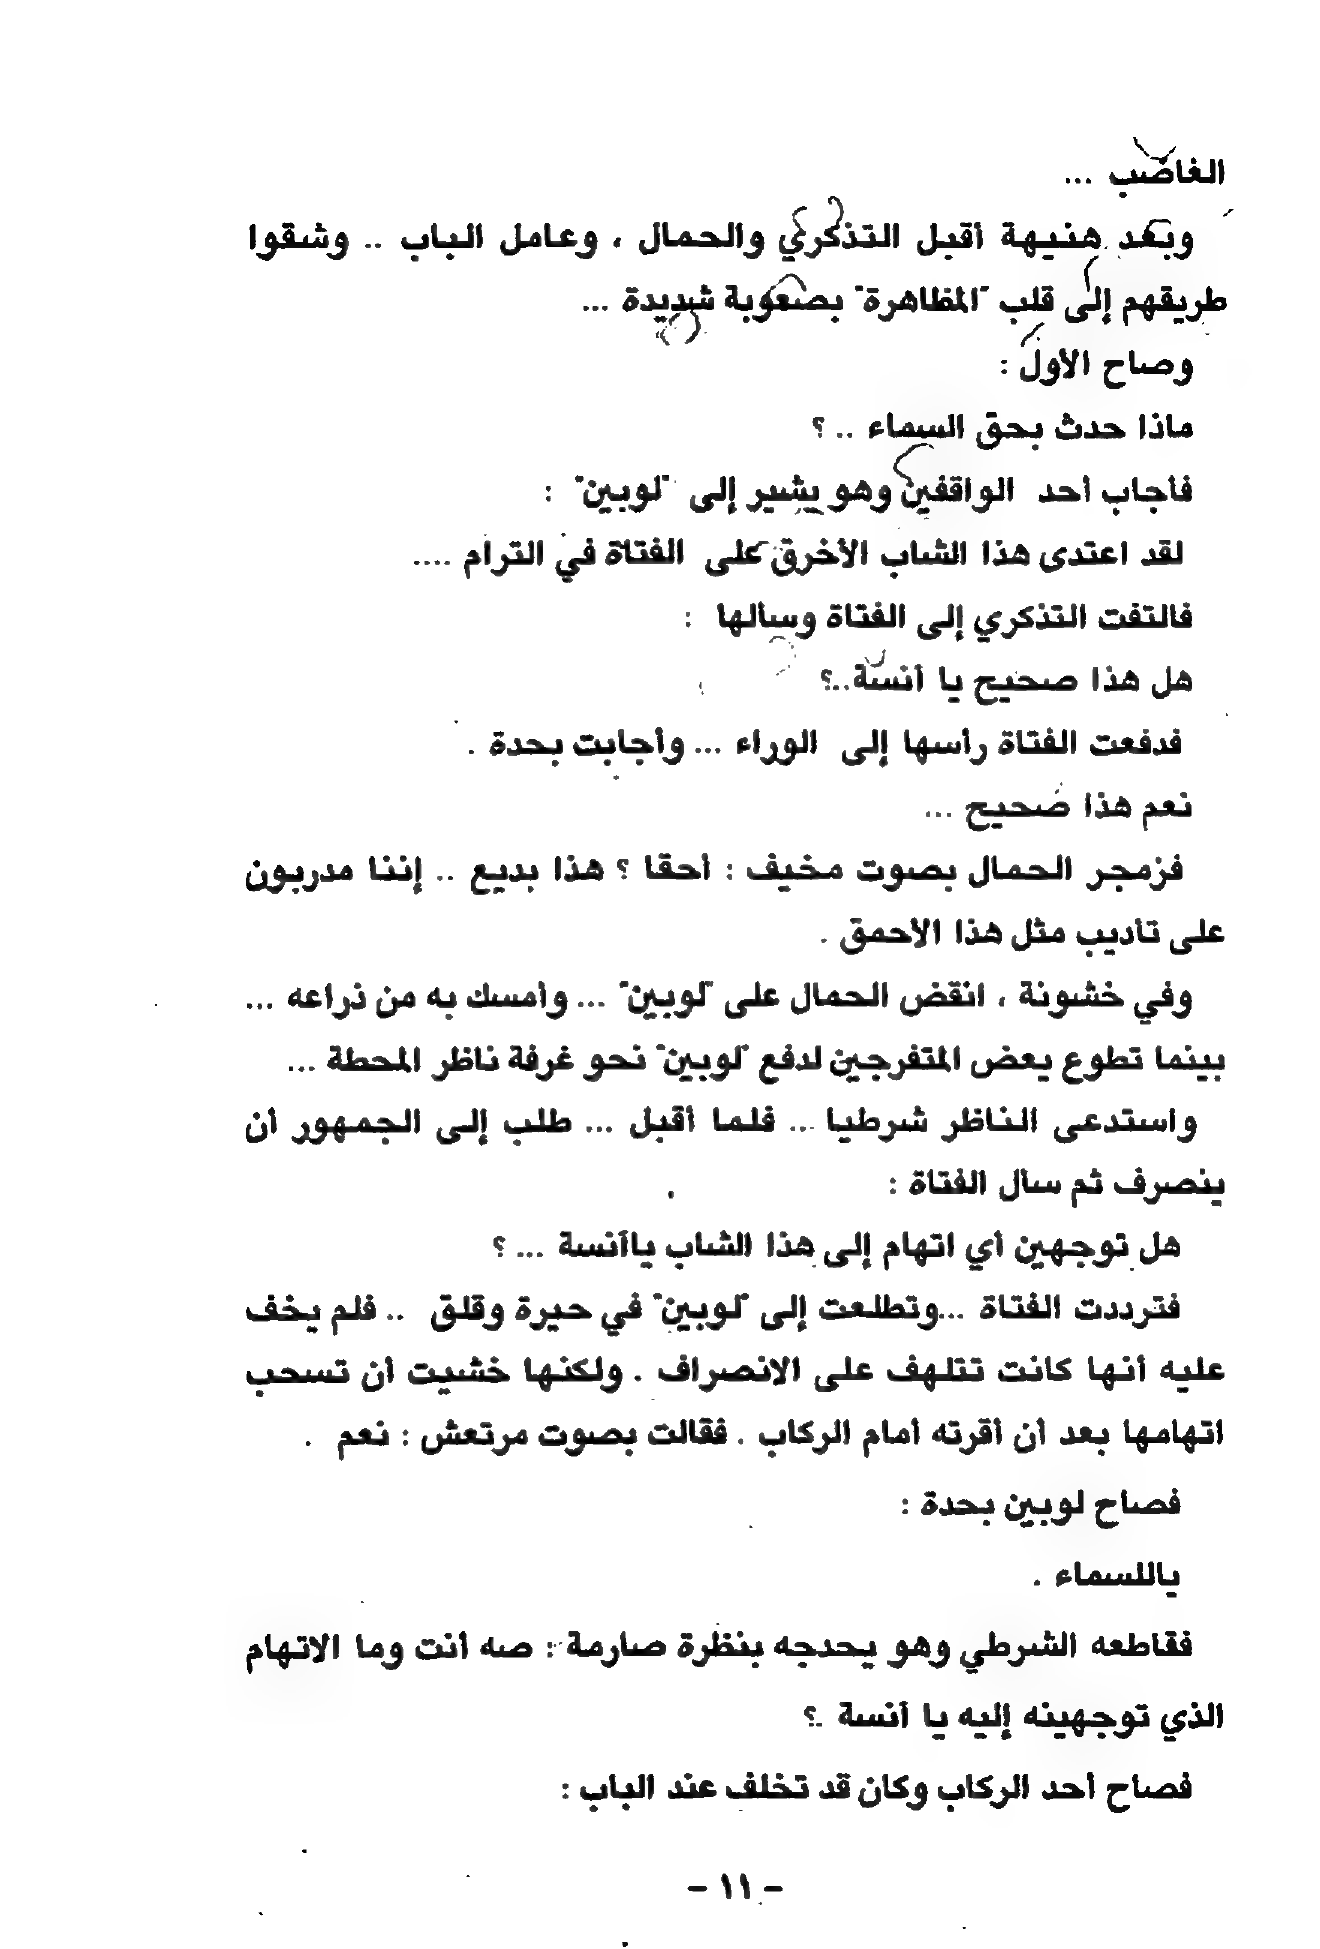 الغاضب ...
وبعد هنيهة أقبل التذكري والحمال ، وعامل الباب .. وشقوا
طريقهم إلى قلب "المظاهرة" بصعوبة شديدة ...
وصاح الأول :
ماذا حدث بحق السماء .. ؟
فأجاب أحد الواقفين وهو يشير إلى "لوبين" :
لقد اعتدى هذا الشاب الأخرق على الفتاة في الترام ....
فالتفت التذكري إلى الفتاة وسألها :
هل هذا صحيح يا أنسة..؟
فدفعت الفتاة رأسها إلى الوراء ... وأجابت بحدة .
نعم هذا صحيح ...
فزمجر الحمال بصوت مخيف : أحقا ؟ هذا بديع .. إننا مدربون
على تأديب مثل هذا الأحمق .
وفي خشونة ، انقض الحمال على "لوبين" ... وأمسك به من ذراعه ...
بينما تطوع بعض المتفرجين لدفع "لوبين" نحو غرفة ناظر المحطة ...
واستدعى الناظر شرطيا ... فلما أقبل ... طلب إلى الجمهور أن
ينصرف ثم سأل الفتاة :
هل توجهين أي اتهام إلى هذا الشاب ياآنسة ... ؟
فترددت الفتاة ...وتطلعت إلى "لوبين" في حيرة وقلق .. فلم يخف
عليه أنها كانت تتلهف على الانصراف . ولكنها خشيت أن تسحب
اتهامها بعد أن أقرته أمام الركاب . فقالت بصوت مرتعش : نعم .
فصاح لوبين بحدة :
ياللسماء .
فقاطعه الشرطي وهو يحدجه بنظرة صارمة : صه أنت وما الاتهام
الذي توجهينه إليه يا أنسة .؟
فصاح أحد الركاب وكان قد تخلف عند الباب :
- ١١ -